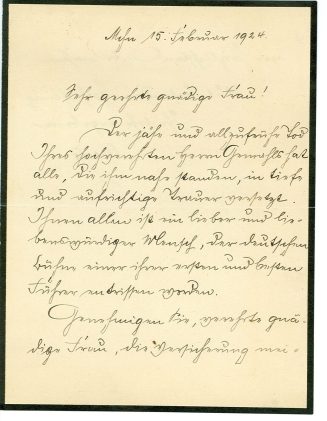 Mchn 15. Februar 1924.
Sehr geehrte gnädige Frau!
Der jähe und allzufrühe Tod
Ihres hochverehrten Herrn Gemahls hat
alle, die ihm nahe standen, in tiefe
und aufrichtige Trauer versetzt.
Ihnen allen ist ein lieber und lie-
benswürdiger Mensch, der deutschen
Bühne einer ihrer ersten und besten
Führer entrissen worden.
Genehmigen Sie, verehrte gnä-
dige Frau, die Versicherung mei-